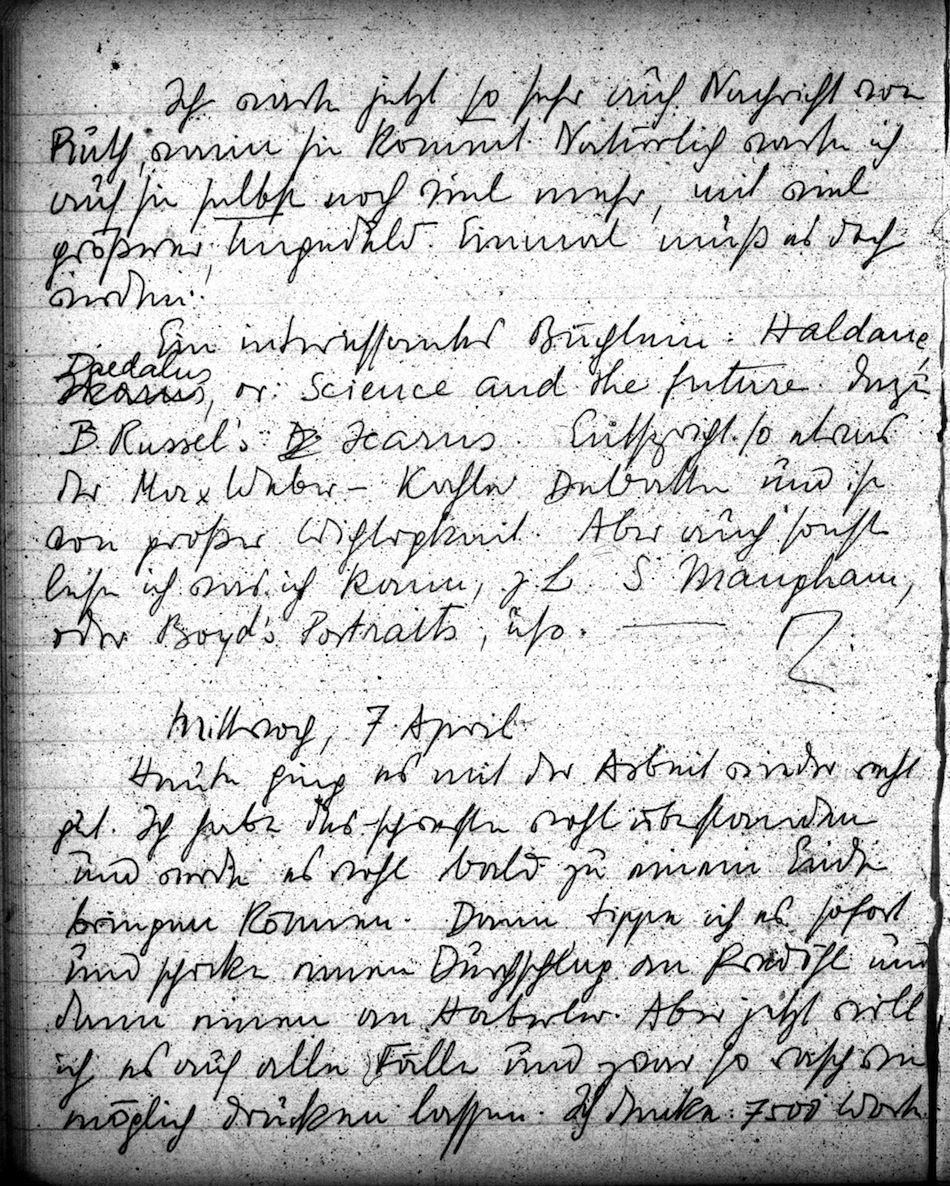 Ich warte jetzt so sehr auf Nachricht von
Ruth, wann sie kommt. Natürlich warte ich
auf sie selbst noch viel mehr, mit viel
größerer Ungeduld. Einmal muß es doch
werden.
Ein interessantes Büchlein: Haldane,
Daedalus, or: Science and the future. Dazu
B. Russel's Icarus. Entspricht so etwas
der Max Weber – Kahler Debatte und ist
von großer Wichtigkeit. Aber auch sonst
lese ich was ich kann, z. B. S. Maugham,
oder Boyd's Portraits, usw. —
Mittwoch, 7. April
Heute ging es mit der Arbeit wieder recht
gut. Ich habe das schwerste wohl überstanden
und werde es wohl bald zu einem Ende
bringen können. Dann tippe ich es sofort
und schicke einen Durchschlag an und
dann einen an Haberler. Aber jetzt will
ich es auf alle Fälle und zwar so rasch wie
möglich drucken lassen. Ich denke: 7500 Worte.